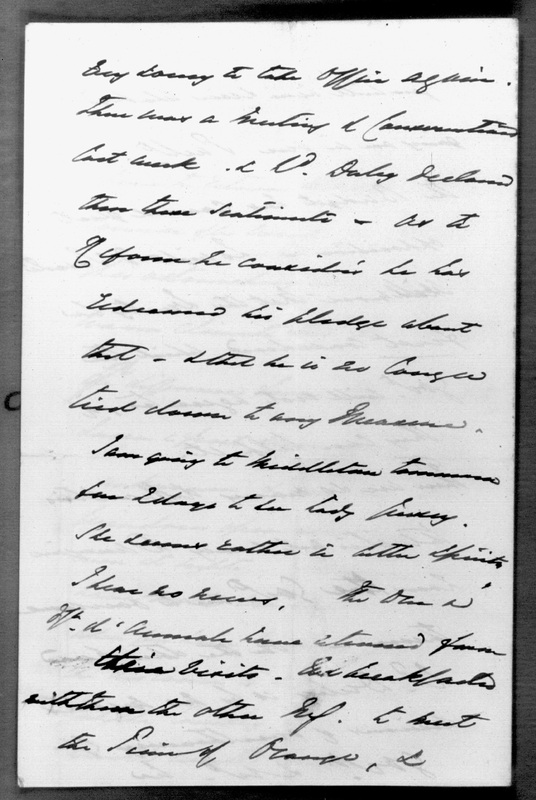 very sorry to take office again.
There was a Meeting of Conservatives
last week. & Ld. Derby declared
then these Sentiments - As to
Reform he considers he has
redeemed his pledge about
that - & that he is no longer
tied down to any Measure.
I am going to Middleton tomorrow
for 2 days to see Lady Jersey.
She seems rather in better Spirits
I hear no news. The Duc &
d'Aumale have returned from
their visits - breakfasted
with them the other to meet
the Prince of Orange, &